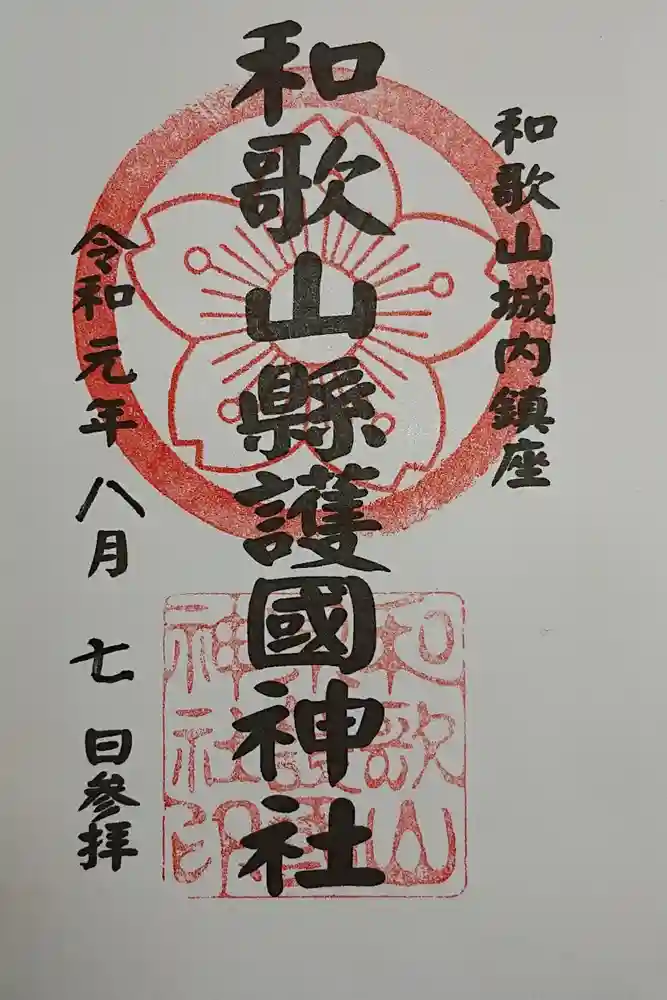 和歌山城内鎮座
和歌山縣護國神社
令和元年八月七日参拝
和歌山
縣護國
神社印